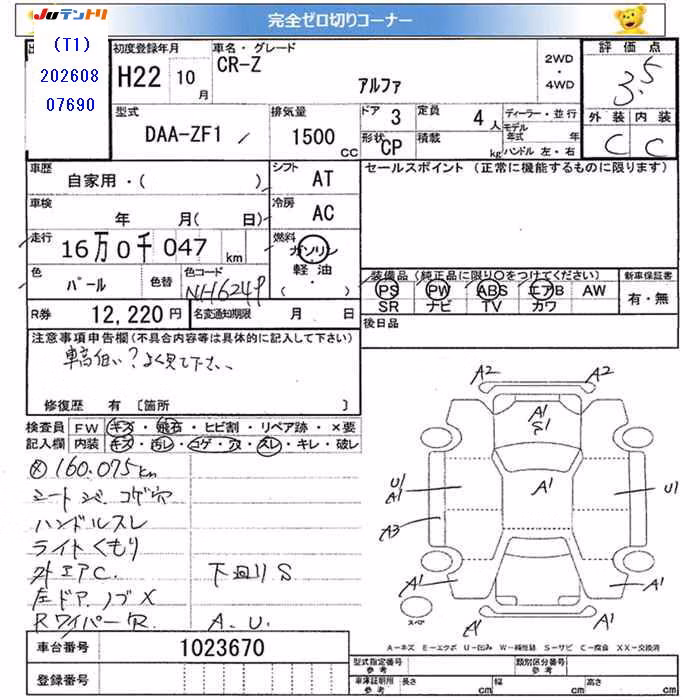 JUテントリ 完全ゼロ切りコーナー
(T1)
202608
07690
初度登録年月 車名・グレード 評価点
H22 10月 CR-Z アルファ 2WD・4WD 3.5
型式 排気量 ドア 3 定員 4人 ディーラー・並行 外装 内装
DAA-ZF1 1500cc 形状 CP 積載 kg モデル年式 年 C C
ハンドル 左・右
車歴 シフト セールスポイント (正常に機能するものに限ります)
自家用・( ) AT
車検 冷房
年 月( 日) AC
走行 燃料
16万0千047km ガソリン
軽油
・( )
色 色替 色コード 装備品(純正品に限り○をつけてください) 新車保証書
パール NH624P PS PW ABS エアB AW 有・無
SR ナビ TV カワ
R券 12,220円 名変通知期限 月 日 後日品
注意事項申告欄(不具合内容等は具体的に記入して下さい)
車高低い?よく見て下さい
修復歴 有〔箇所 〕
検査員 FW キズ・飛石・ヒビ割・リペア跡・×要
記入欄 内装 キズ・汚レ・コゲ・穴・スレ・キレ・破レ
160.075km
シート コゲ穴
ハンドルスレ
ライトくもり
外エアC. 下回りS
左ドアノブX
Rワイパー A.U.
A2 A2
A1
S1
U1
A1
A1
U1
A3
A1 A1
A1 A1
スペア
A-キズ E-エクボ U-凹み W-補修跡 S-サビ C-腐食 XX-交換済
車台番号 1023670
登録番号
型式指定番号 参考 類別区分番号 参考
車庫証明用 参考 長さ cm 幅 cm 高さ cm